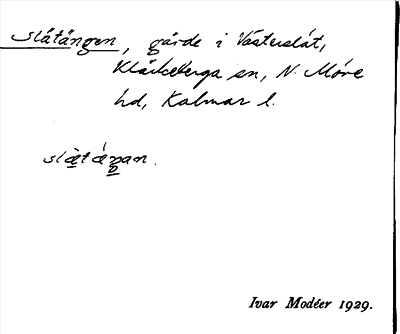 Slätängen, gärde i Västerslät,
Kläckeberga sn, N. Möre
hd, Kalmar l.
slätäŋan.
Ivar Modéer 1929.